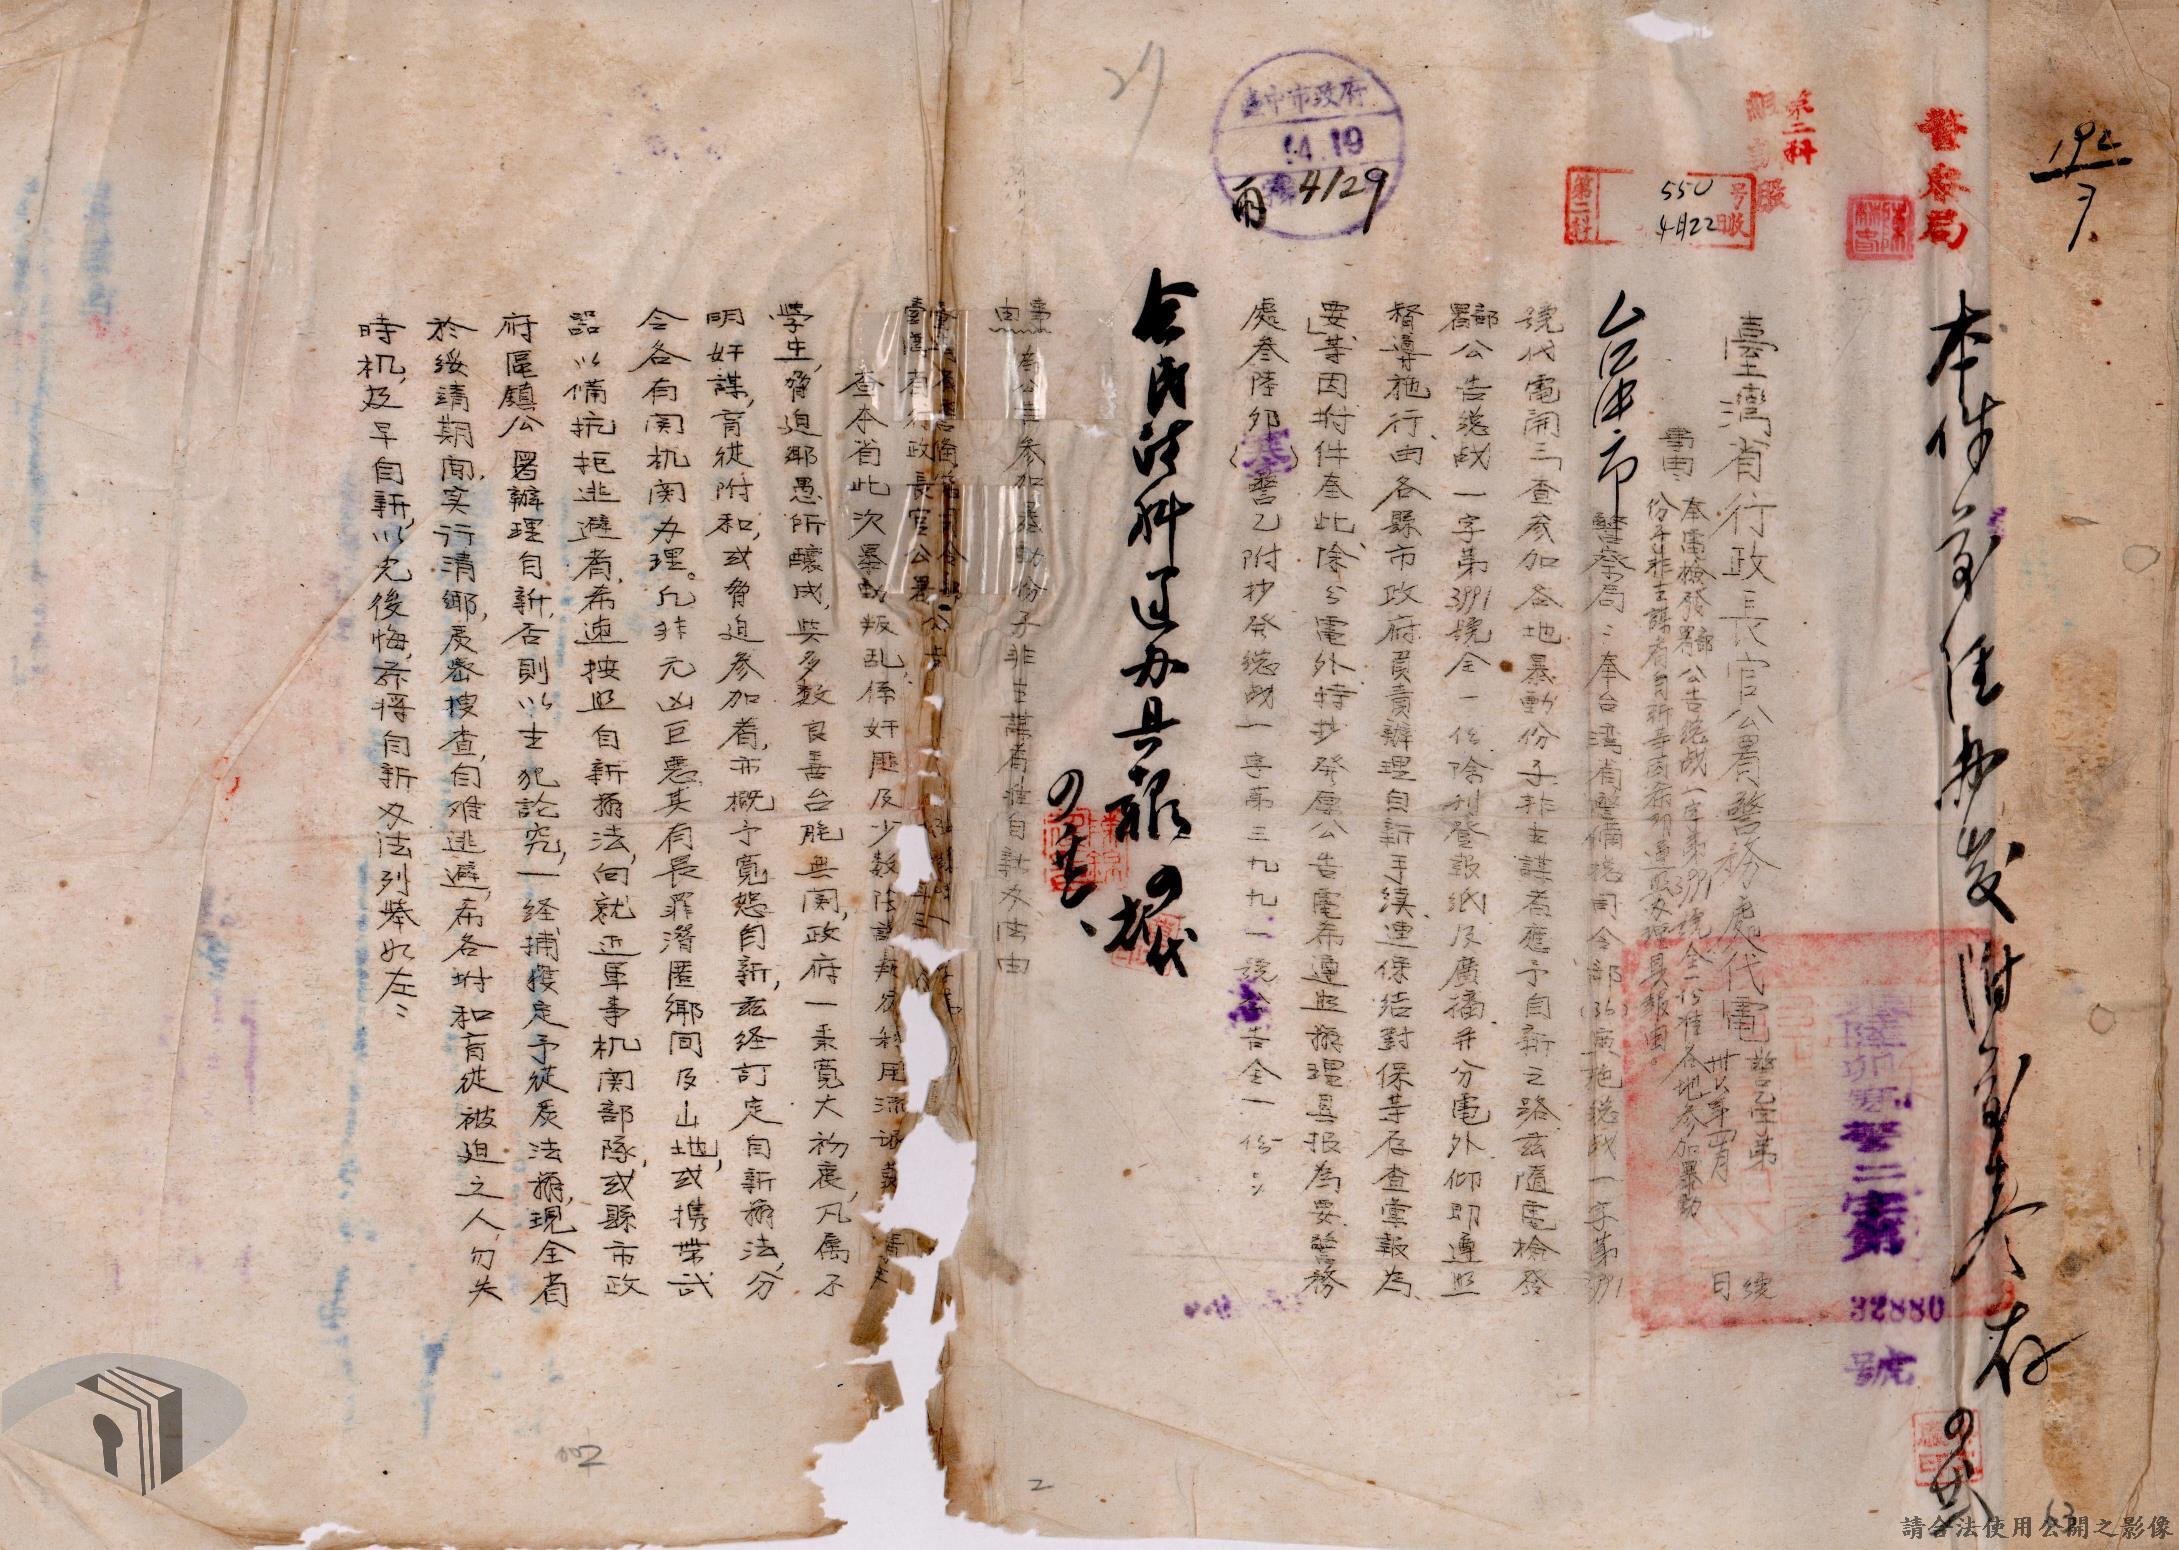 192
警察局
第二科
第二科
550
号
4月22日收
臺中市政府
4.19
4/29
臺灣省行政長官公署警務處代電
警乙字第
號
卅六年四月
日
警二字第
32880
號
事由
奉電檢發署部公告總战一字第3991號全一份准各地參加暴動
份子非主謀者自新等因希即遵照办理具報由。
台中市警察局：奉台灣省警備總司令部(36)寅拖總战一字第3991
號代電開「查參加各地暴動份子非主謀者應予自新之路茲隨電檢發
署部公告總战一字第3991號全一份除刊登報紙及廣播并分電外仰即遵照
督導施行、由各縣市政府負責辦理自新手續連保結對保等存查彙報為
要」等因附件奉此、除分電外特抄發原公告電希遵照辦理具报為要、警務
處叁陸卯(寒)警乙附抄發總战一字第三九九一號公告全一份：
本件前經
附
存
民法科
办具報
事由
為公告參加暴動份子非主謀者准自新办法由
臺灣省警備總司令部
臺灣省行政長官公署
公告
查本省此次暴動叛乱、係奸匪及少数陰謀
利用流
学生、脅迫鄉愚所釀成、與多数良善台胞無関、政府一秉寬大初衷、凡属不
明奸謀、盲從附和、或脅迫參加者、亦概予寬恕自新、茲経訂定自新辦法、分
令各有関机関办理。凡非元凶巨惡、其有畏罪潛匿鄉间及山地、或携带武
器以備抗拒逃避者、希速按照自新辦法、向就近軍事机関部隊、或縣市政
府區鎮公署辦理自新、否則以主犯論究、一経捕獲定予從嚴法辦、現全省
於綏靖期间、实行清鄉、嚴密搜查、自难逃避、希各附和盲從被迫之人、勿失
時机、及早自新、以免後悔、茲将自新办法列举如左：
002
2
請合法使用公開之影像